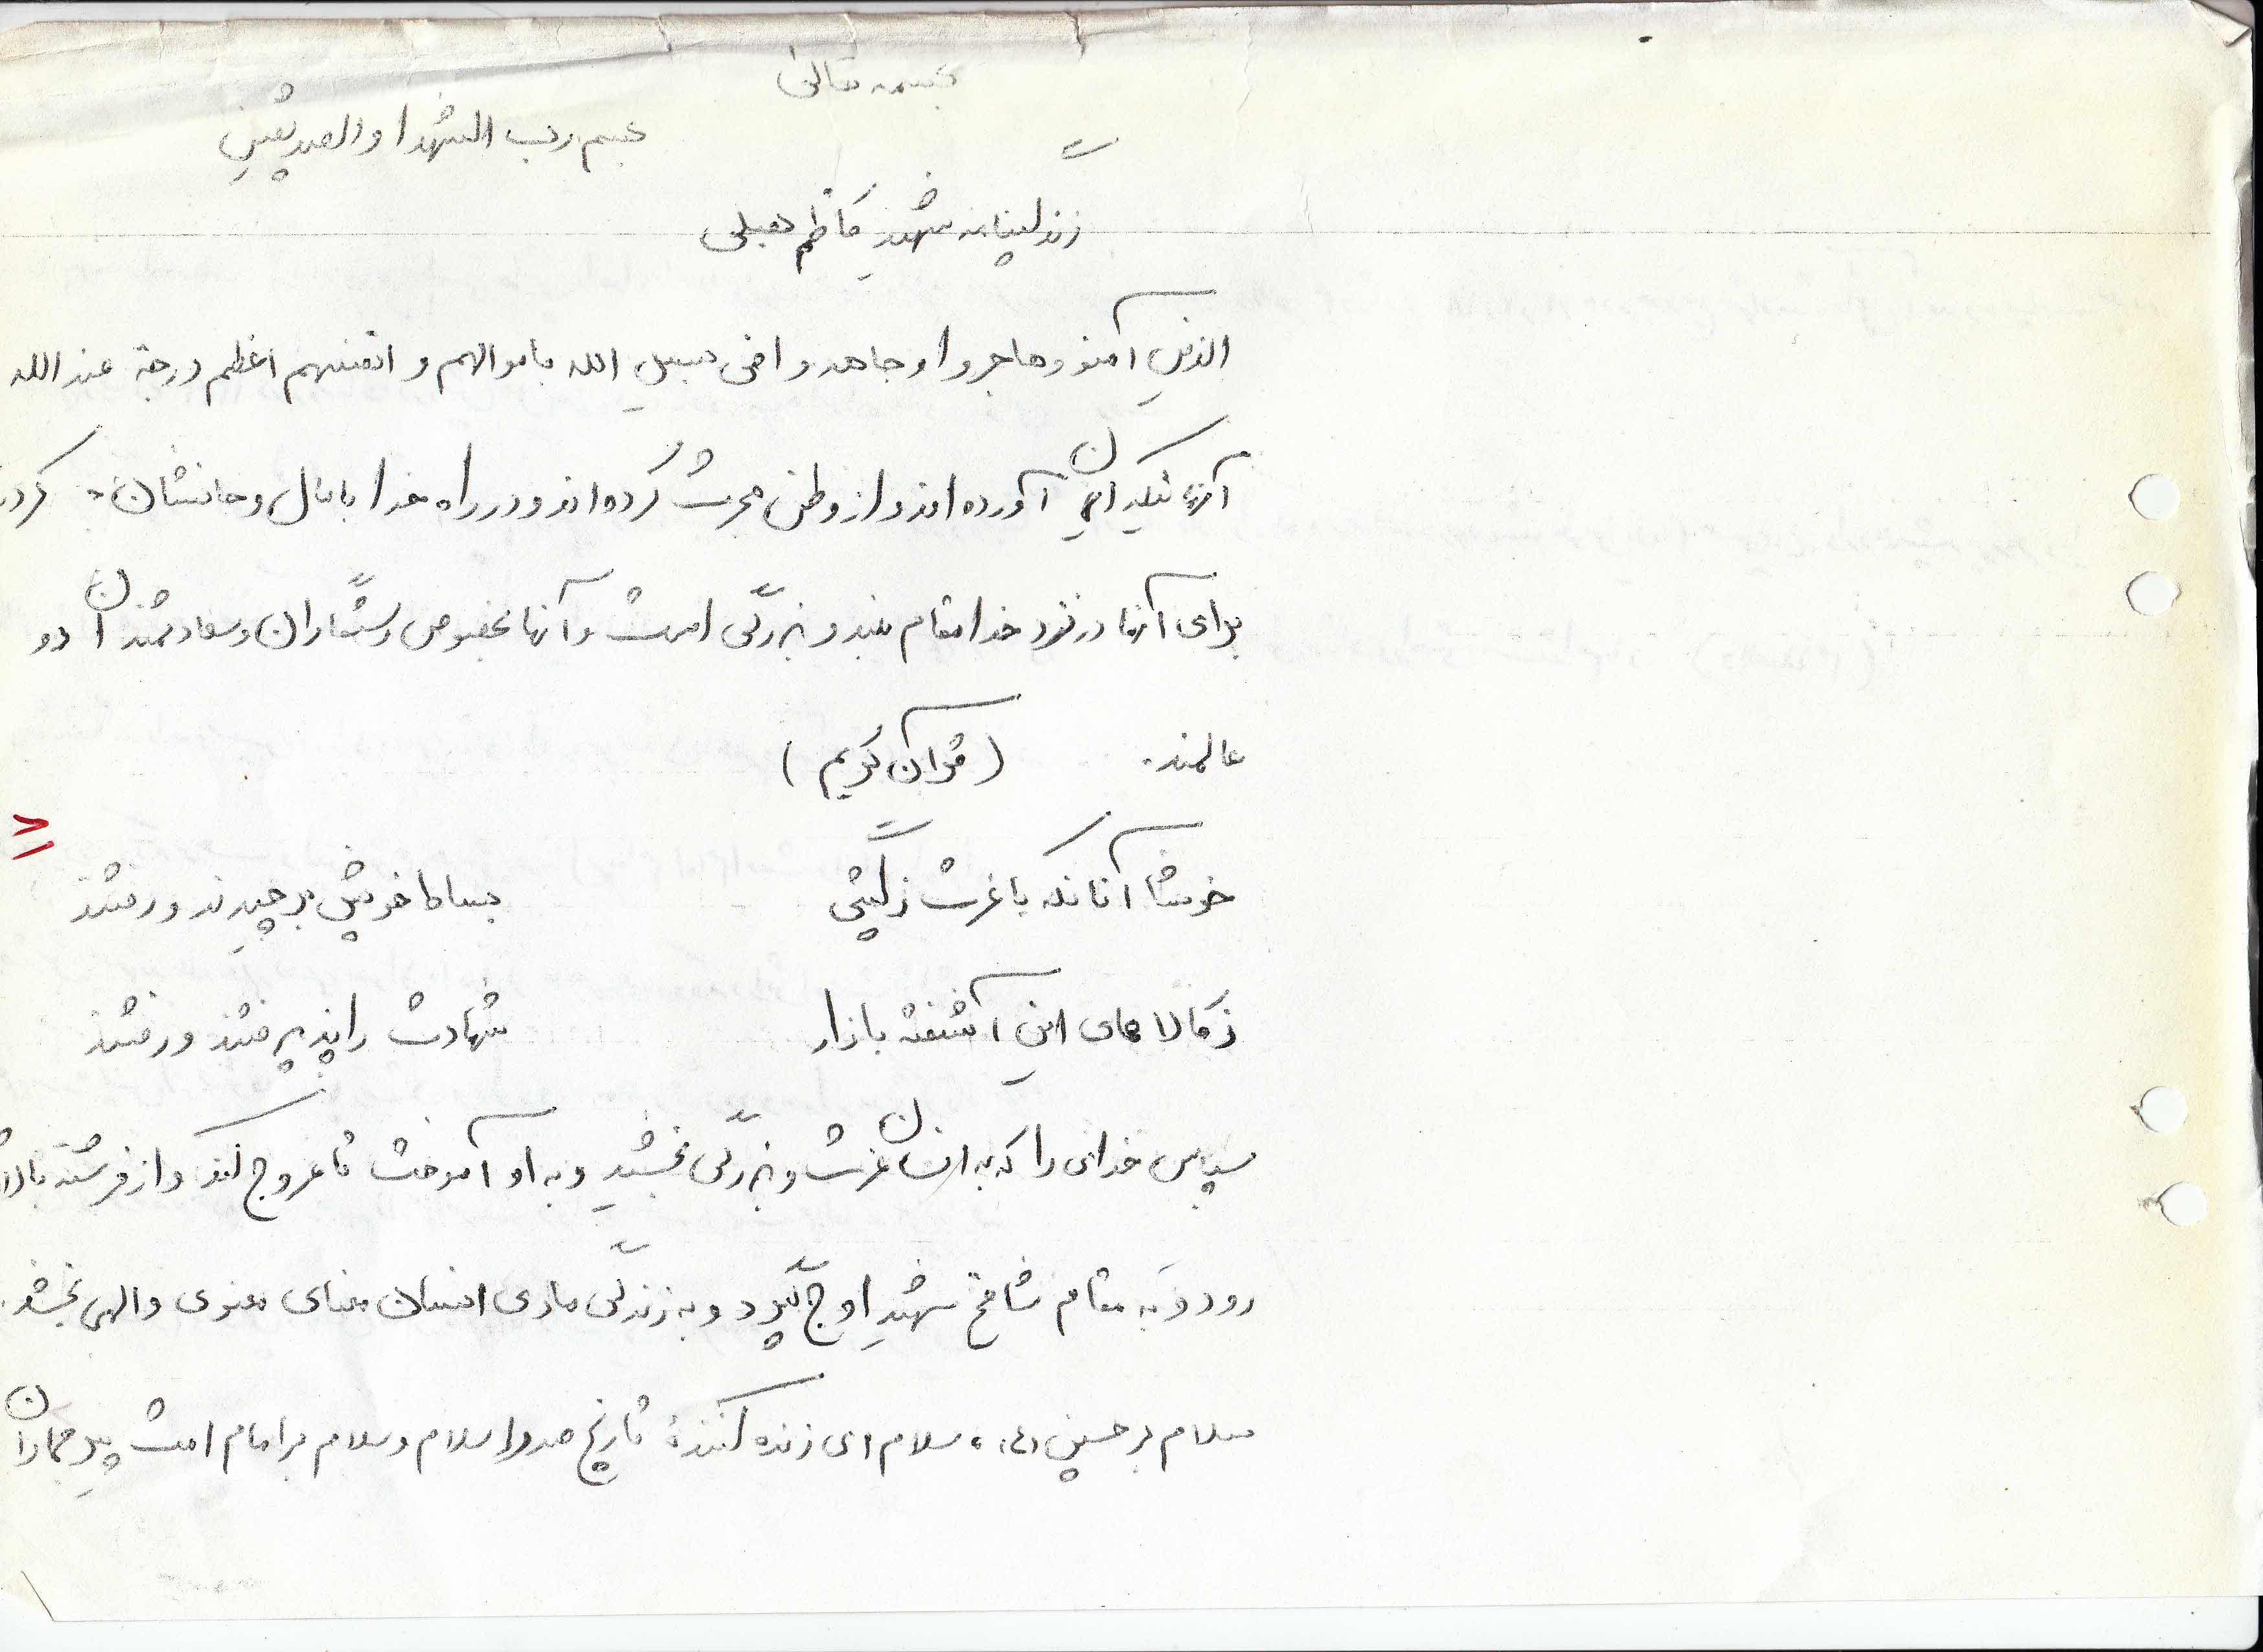 بسمه تعالی
بسم رب الشهدا والصدیقین
زندگینامه شهید کاظم
الذین آمنو وهاجروا وجاهدوا فی سبیل الله باموالهم و انفسهم اعظم درجة عند الله
آنانیکه ایمان آورده اند و از وطن هجرت کرده اند و در راه خدا با مال و جانشان
برای آنها در نزد خدا مقام بلند و بزرگی است و آنها بخصوص رستگاران و سعادتمندان دو
عالمند. (قرآن کریم)
خوشا آنانکه با عزت ز گیتی بساط خویش برچیدند و رفتند
ز کالاهای این آشفته بازار شهادت را پذیرفتند و رفتند
سپاس خدای را که به انسان عزت و بزرگی بخشید و به او آموخت تا عروج کند و از فرشته بالاتر
رود و به مقام شامخ شهید اوج گیرد و به زندگی مادی انسان معنای معنوی و الهی بخشد.
سلام بر حسین (ع)، سلام ای زنده کنندهٔ تاریخ صدر اسلام و سلام بر امام امت پیر جماران